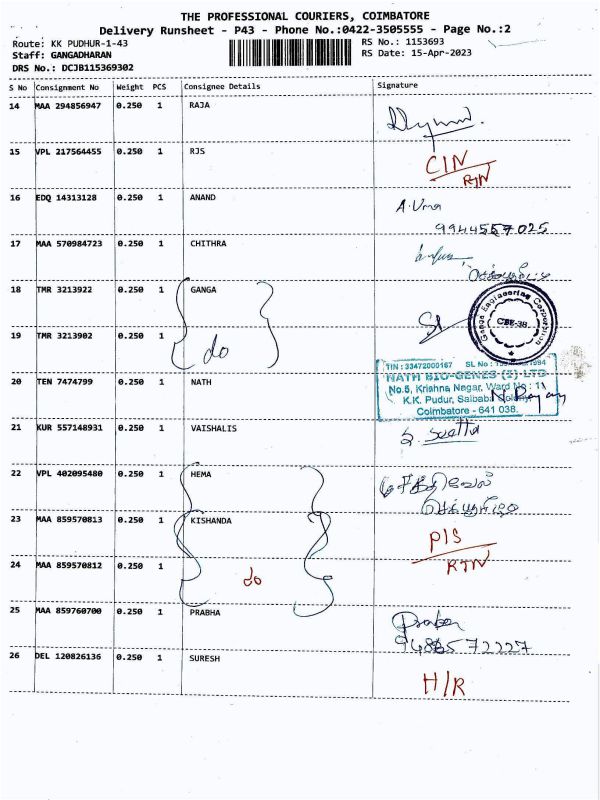 THE PROFESSIONAL COURIERS, COIMBATORE
Delivery Runsheet - P43 - Phone No.:0422-3505555 - Page No.:2
Route: KK PUDHUR-1-43 RS No.: 1153693
Staff: GANGADHARAN RS Date: 15-Apr-2023
DRS No.: DCJB115369302
S No Consignment No Weight PCS Consignee Details Signature
14 MAA 294856947 0.250 1 RAJA
15 VPL 217564455 0.250 1 RJS CIN
RTN
16 EDQ 14313128 0.250 1 ANAND A. Uma
9944557025
17 MAA 570984723 0.250 1 CHITHRA
18 TMR 3213922 0.250 1 GANGA
Ganga Engineering Corporation
CBE-38.
19 TMR 3213902 0.250 1 do
TIN : 33472000167 SL No :
20 TEN 7474799 0.250 1 NATH NATH BIO-GENES (I) LTD
No.5, Krishna Nagar, Ward No : 11
K.K. Pudur, Saibaba Colony,
Coimbatore - 641 038.
21 KUR 557148931 0.250 1 VAISHALIS
22 VPL 402095480 0.250 1 HEMA
23 MAA 859570813 0.250 1 KISHANDA P/S
RTN
24 MAA 859570812 0.250 1 do
25 MAA 859760700 0.250 1 PRABHA
26 DEL 120826136 0.250 1 SURESH H/R